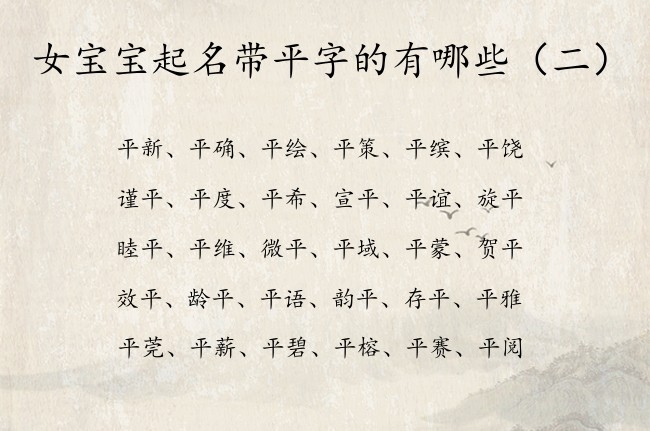 女宝宝起名带平字的有哪些（二）
平新、平确、平绘、平策、平缤、平饶
谨平、平度、平希、宣平、平谊、旋平
睦平、平维、微平、平域、平蒙、贺平
效平、龄平、平语、韵平、存平、平雅
平莞、平薪、平碧、平榕、平赛、平阅